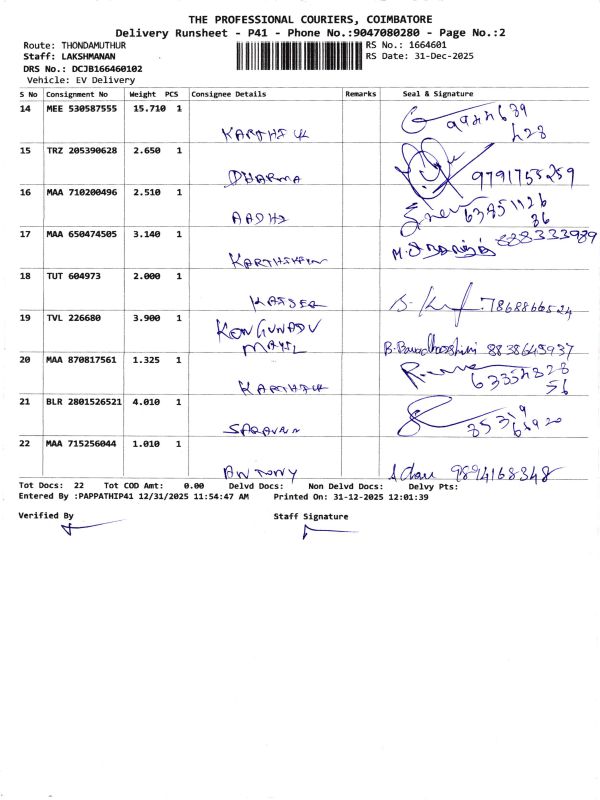 THE PROFESSIONAL COURIERS, COIMBATORE
Delivery Runsheet - P41 - Phone No.:9047080280 - Page No.:2
Route: THONDAMUTHUR
RS No.: 1664601
Staff: LAKSHMANAN
RS Date: 31-Dec-2025
DRS No.: DCJB166460102
Vehicle: EV Delivery
S No Consignment No Weight PCS Consignee Details Remarks Seal & Signature
14 MEE 530587555 15.710 1
KARTHIK
15 TRZ 205390628 2.650 1
DHARMA 9791755259
16 MAA 710200496 2.510 1
AADHI
17 MAA 650474505 3.140 1
18 TUT 604973 2.000 1
7868866524
19 TVL 226680 3.900 1
KONGUNADU
MAYIL 8838645937
20 MAA 870817561 1.325 1
KARTHIK
21 BLR 2801526521 4.010 1
SARAVAN
22 MAA 715256044 1.010 1
ANTONY 9894168348
Tot Docs: 22 Tot COD Amt: 0.00 Delvd Docs: Non Delvd Docs: Delvy Pts:
Entered By :PAPPATHIP41 12/31/2025 11:54:47 AM Printed On: 31-12-2025 12:01:39
Verified By Staff Signature